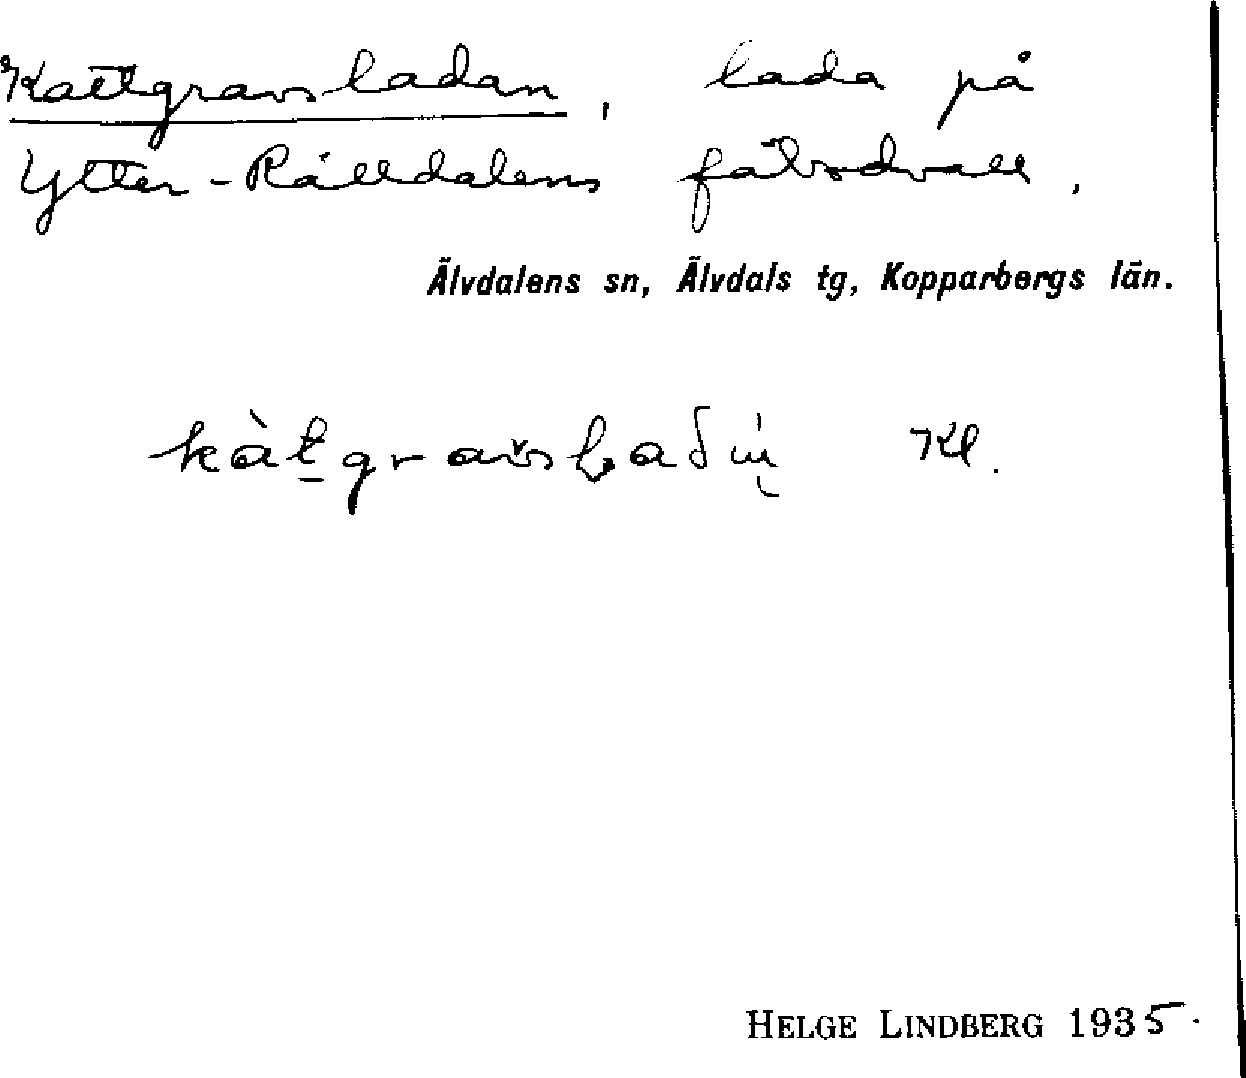 Kattgravsladan, lada på
Ytter-Rålldalens fäbodvall.
Älvdalens sn, Älvdals tg, Kopparbergs län.
Kl.
HELGE LINDBERG 1935.